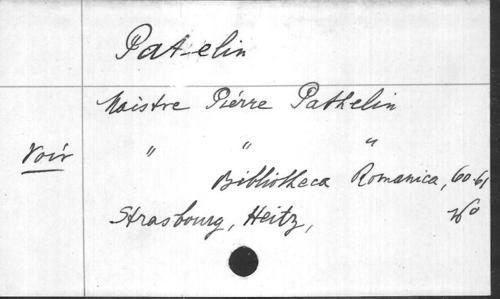 Patelin
Maistre Pierre Pathelin
Voir " " "
Bibliotheca Romanica, 60-61
Strasbourg, Heitz, in-16°